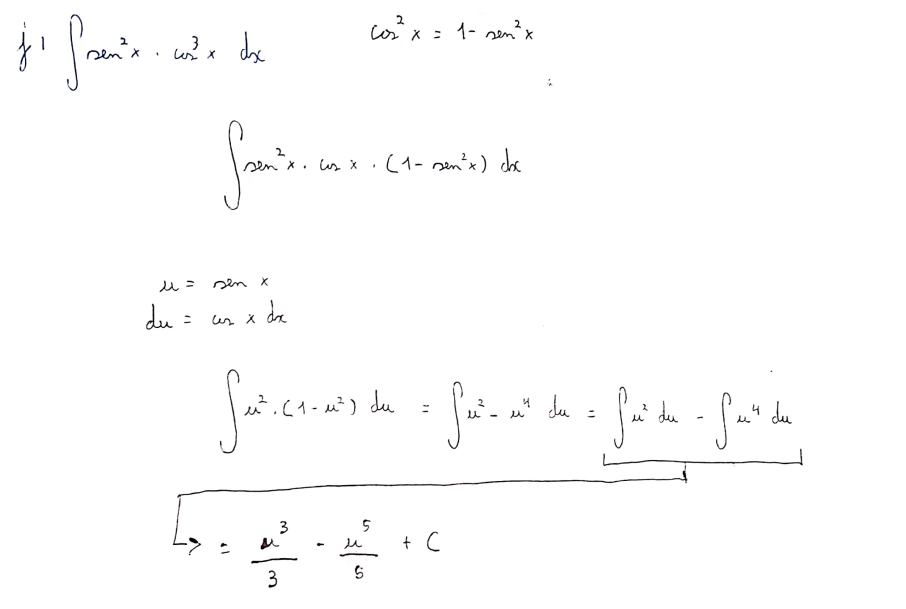 j) ∫ sen²x · cos³x dx    cos²x = 1 - sen²x
∫ sen²x · cos x · (1 - sen²x) dx
u = sen x
du = cos x dx
∫ u² · (1 - u²) du = ∫ u² - u⁴ du = ∫ u² du - ∫ u⁴ du
= u³/3 - u⁵/5 + C